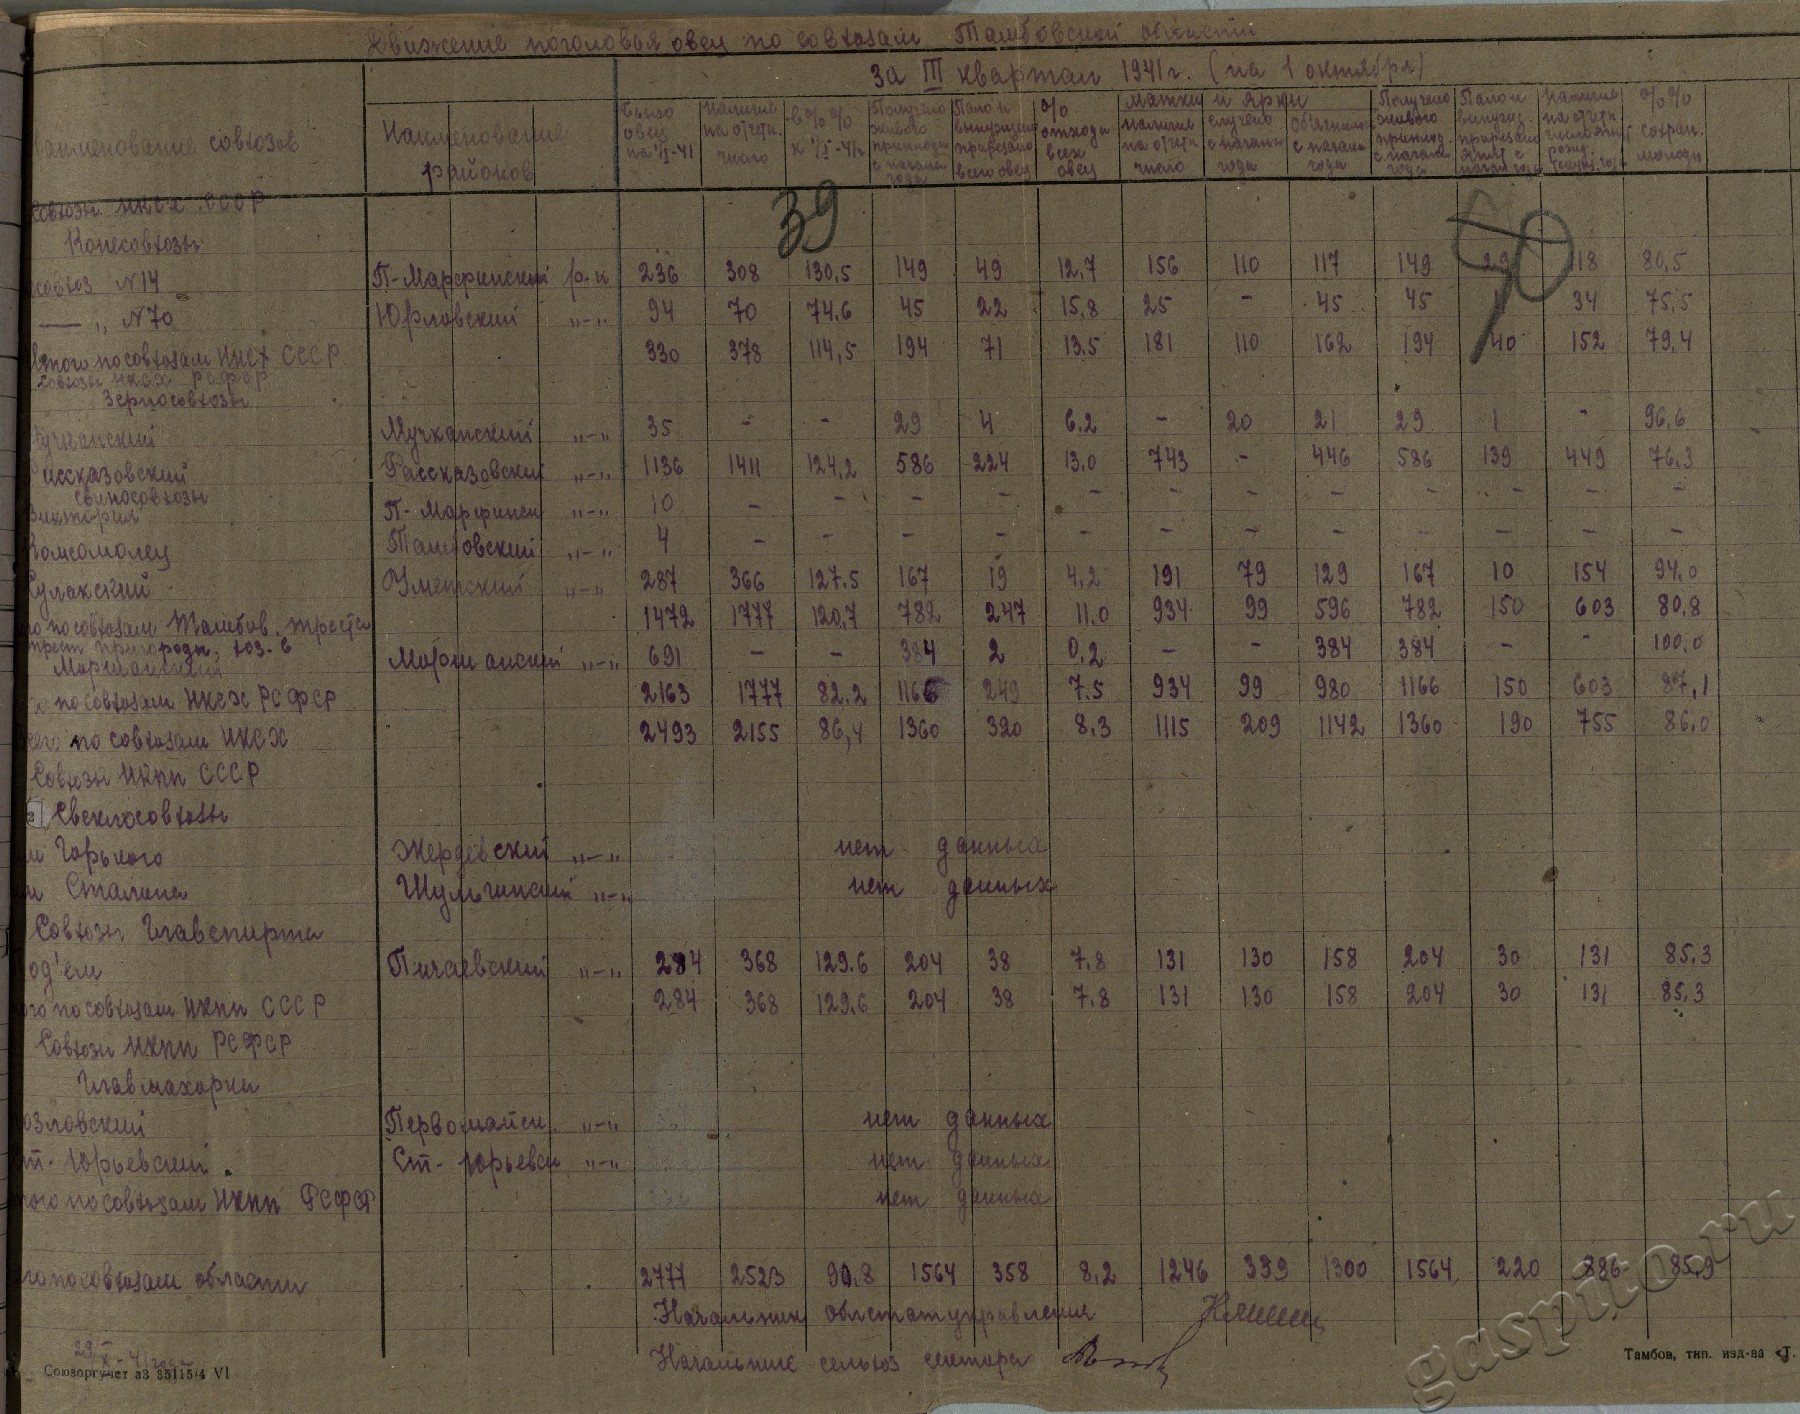 Движение поголовья овец по совхозам Тамбовской области
за III квартал 1941 г. (на 1 октября)
Наименование совхозов Наименование районов Было овец на 1/I-41 Наличие на отчетн. число в %% к 1/I-41г Получено живого приплода с начала года Пало и вынужденно прирезано всего овец % отхода всех овец матки и ярки наличие на отчетн. число случено с начала года Объягнилось с начала года Получено живого приплод. с начала года Пало и вынужд. прирезано ягнят с начал. года Наличие на отчетн. число ягнят рожд. %% сохран. молодн
39
70
Совхозы НКСХ СССР
Конесовхозы
совхоз N 14 П-Марфинский р-н 236 308 130,5 149 49 12,7 156 110 117 149 29 118 80,5
—„ N 70 Юрловский „-„ 94 70 74.6 45 22 15,8 25 - 45 45 34 75,5
Итого по совхозам НКСХ СССР 330 378 114,5 194 71 13.5 181 110 162 194 40 152 79,4
Совхозы НКСХ РСФСР
Зерносовхозы
Мучкапский Мучкапский „-„ 35 - - 29 4 6.2 - 20 21 29 1 - 96,6
Рассказовский Рассказовский „-„ 1136 1411 124,2 586 224 13.0 743 - 446 586 139 449 76.3
Свиносовхозы
Виктория П-Марфинск „-„ 10 - - - - - - - - - - - -
Комсомолец Тамбовский „-„ 4 - - - - - - - - - - - -
Кулакский Уметский „-„ 287 366 127.5 167 19 4.2 191 79 129 167 10 154 94.0
по совхозам Тамбов. треста 1472 1777 120,7 782 247 11.0 934 99 596 782 150 603 80,8
трест пригородн. хоз-в
Моршанский Моршанский „-„ 691 - - 384 2 0.2 - - 384 384 - - 100,0
по совхозам НКСХ РСФСР 2163 1777 82.2 1166 249 7.5 934 99 980 1166 150 603 87,1
всего по совхозам НКСХ 2493 2155 86,4 1360 320 8.3 1115 209 1142 1360 190 755 86.0
Совхозы НКПП СССР
Свеклосовхозы
им Горького Жердевский „-„ нет данных
им Сталина Шульгинский „-„ нет данных
Совхозы Главспирта
Под'ем Пичаевский „-„ 284 368 129.6 204 38 7.8 131 130 158 204 30 131 85.3
ого по совхозам НКПП СССР 284 368 129.6 204 38 7.8 131 130 158 204 30 131 85,3
Совхозы НКПП РСФСР
Главмахорки
озловский Первомайск. „-„ нет данных
ст-Юрьевский Ст-Юрьевск „-„ нет данных
ого по совхозам НКПП РСФСР нет данных
го по совхозам области 2777 2523 90.8 1564 358 8,2 1246 339 1300 1564 220 886 85,9
Начальник облстатуправления
Начальник сельхоз сектора
29/X-41 года
Союзоргучет аз 35115/4 VI
Тамбов, тип. изд-ва
gaspito.ru